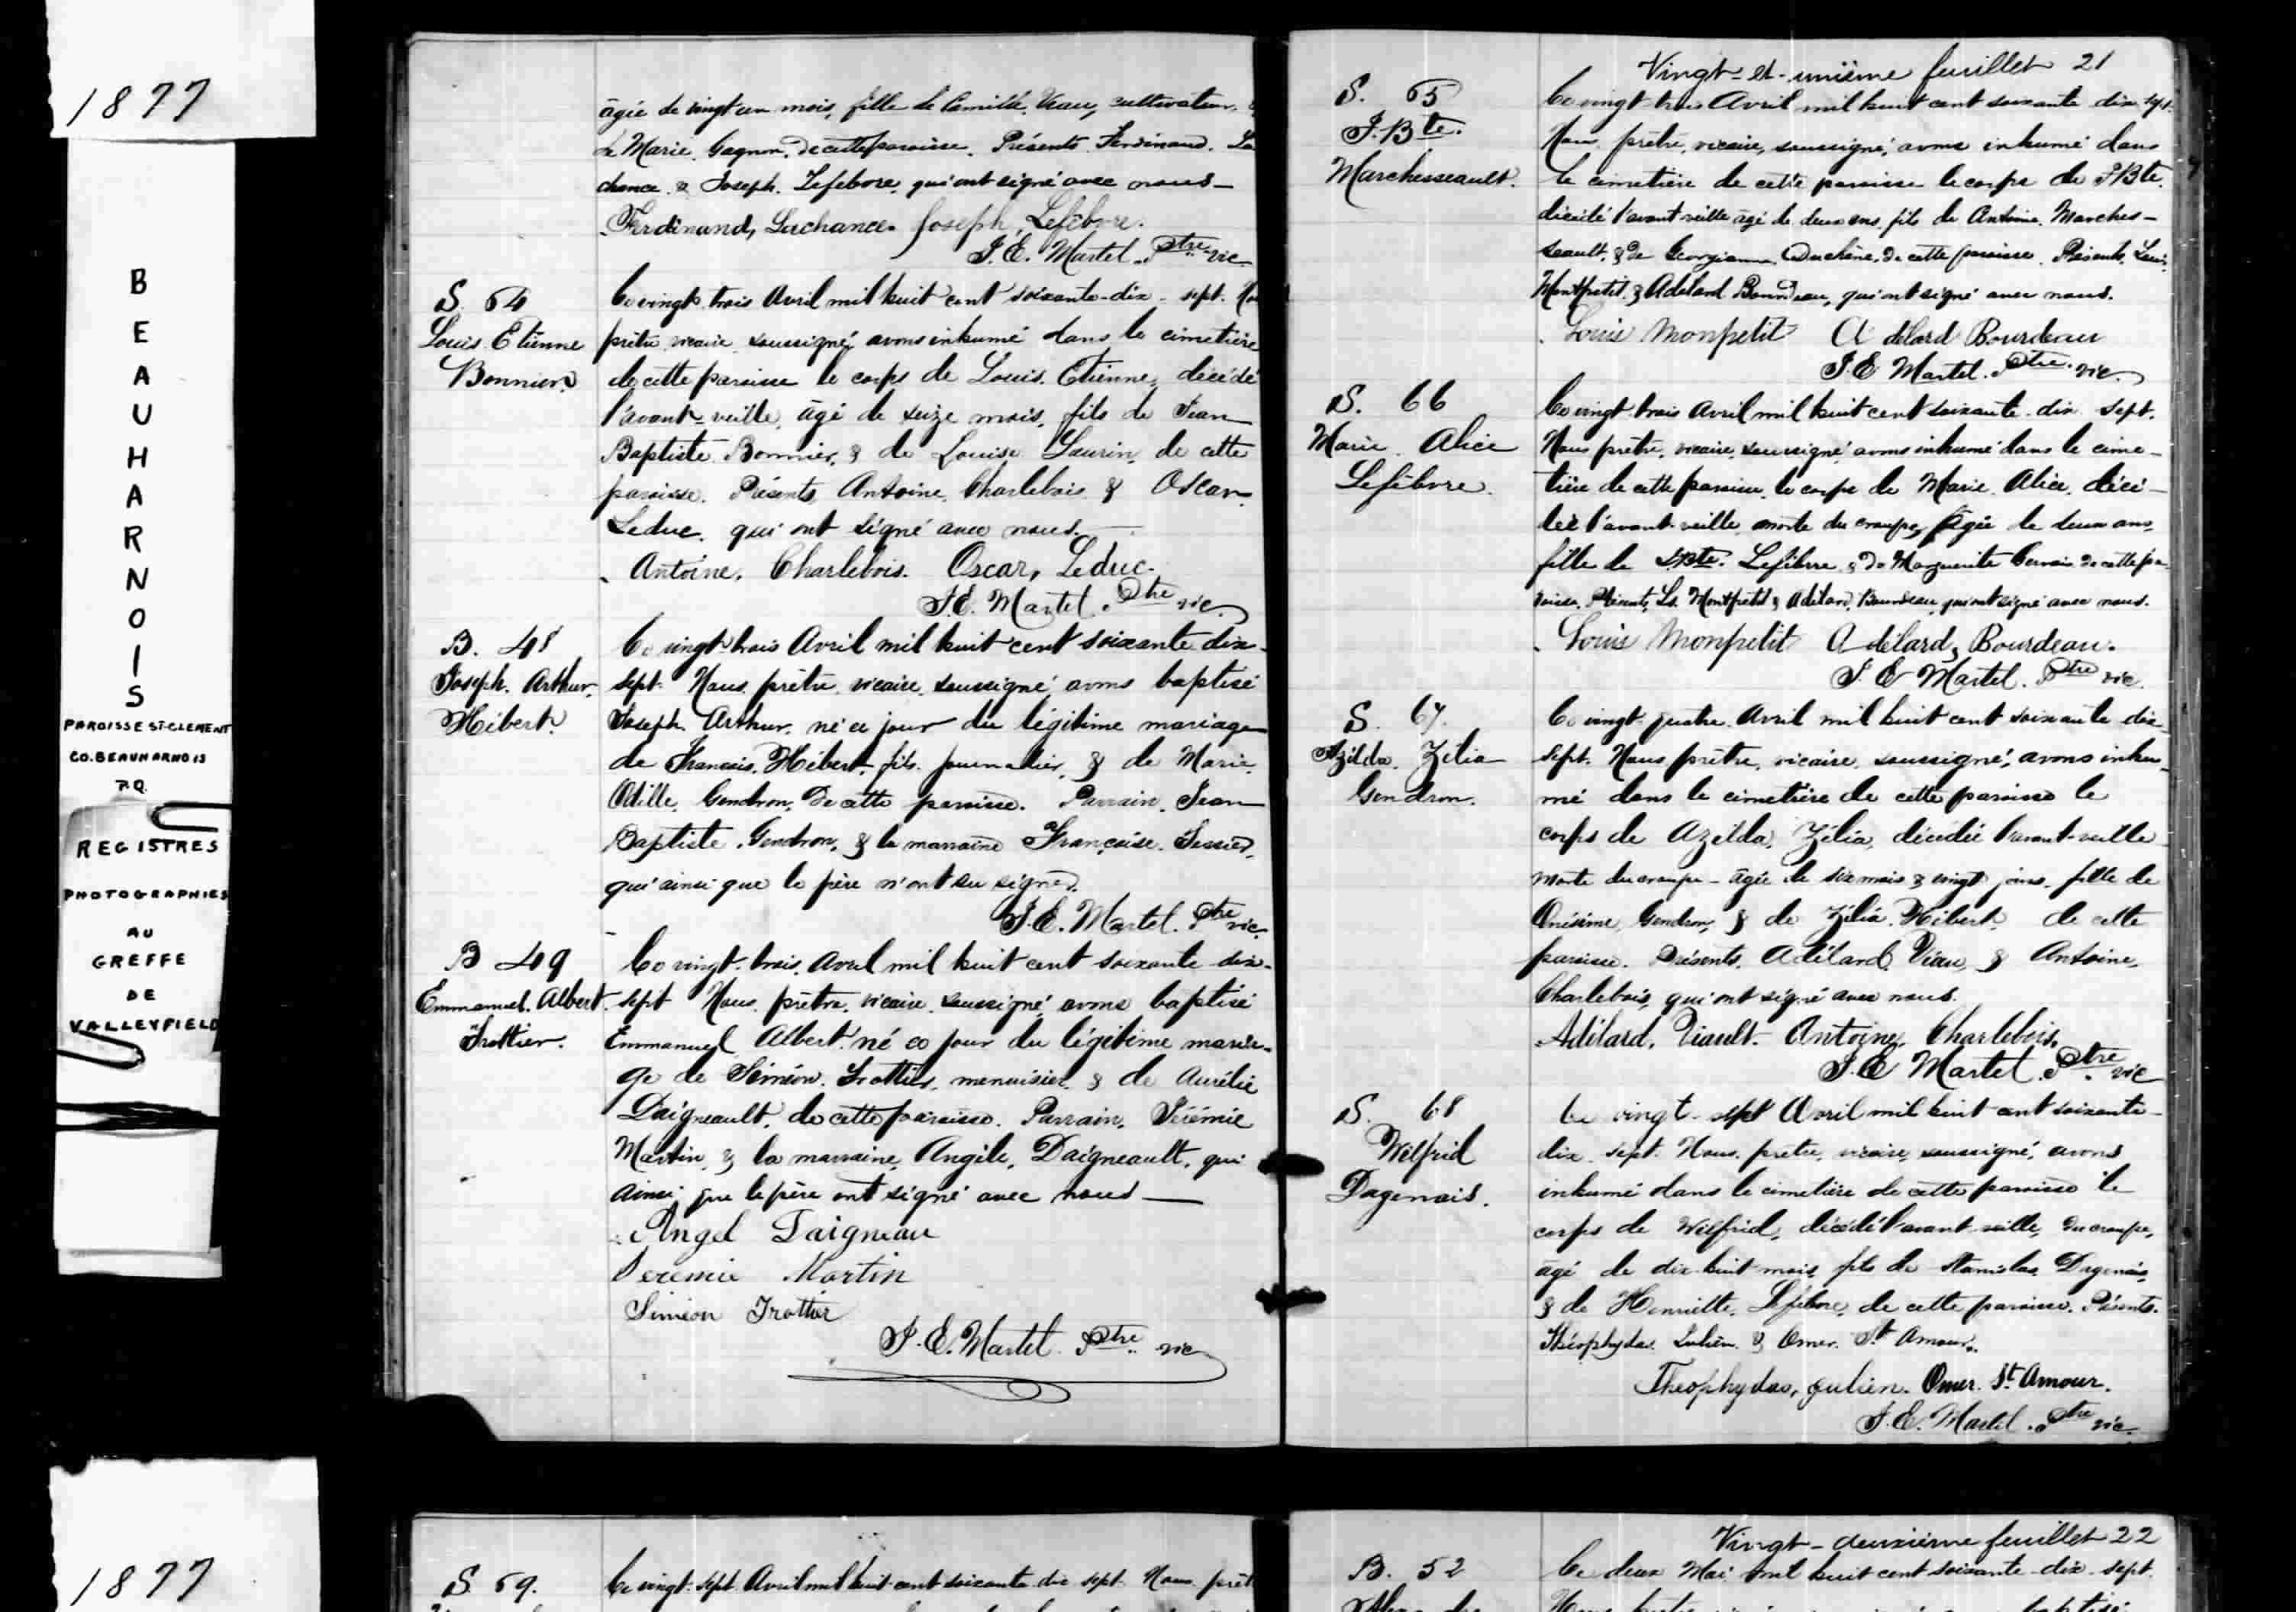 1877
BEAUHARNOIS
PAROISSE ST-CLEMENT
CO. BEAUHARNOIS
P.Q.
REGISTRES
PHOTOGRAPHIES
AU
GREFFE
DE
VALLEYFIELD
âgée de vingt un mois, fille de Camille Viau, cultivateur, &
de Marie Gagnon, de cette paroisse. Présents Ferdinand La
chance & Joseph Lefebvre, qui ont signé avec nous —
Ferdinand, Lachance. Joseph, Lefebvre.
J. E. Martel. Ptre vic.
S. 64
Louis Etienne
Bonnier
Ce vingt-trois Avril mil huit cent soixante-dix-sept. Nou
prêtre vicaire soussigné, avons inhumé dans le cimetière
de cette paroisse le corps de Louis Etienne, décédé
l'avant-veille, âgé de seize mois, fils de Jean
Baptiste Bonnier, & de Louise Laurin, de cette
paroisse. Présents Antoine Charlebois & Oscar
Leduc, qui ont signé avec nous. —
Antoine, Charlebois. Oscar, Leduc.
J. E. Martel. Ptre vic.
B. 48
Joseph. Arthur.
Hébert.
Ce vingt-trois Avril mil huit cent soixante dix-
sept. Nous prêtre vicaire soussigné avons baptisé
Joseph Arthur, né ce jour du légitime mariage
de Francois Hébert, fils journalier, & de Marie
Odille Gendron, de cette paroisse. Parrain, Jean
Baptiste Gendron, & la marraine Françoise Tessier,
qui ainsi que le père n'ont su signer.
J. E. Martel. Ptre vic.
B 49
Emmanuel. Albert.
Trottier.
Ce vingt-trois Avril mil huit cent soixante dix-
sept Nous prêtre, vicaire soussigné, avons baptisé
Emmanuel Albert, né ce jour du légitime maria-
ge de Siméon Trottier, menuisier, & de Aurélie
Daigneault, de cette paroisse. Parrain, Jérémie
Martin, & la marraine, Angèle, Daigneault, qui
ainsi que le père ont signé avec nous —
Angel Daigneau
Jeremie Martin
Simeon Trottier
J. E. Martel Ptre vic
Vingt-et-unième feuillet 21
S. 65
J. Bte.
Marchesseault.
Ce vingt trois Avril mil huit cent soixante dix sept.
Nous prêtre, vicaire, soussigné, avons inhumé dans
le cimetière de cette paroisse le corps de J Bte.
décédé l'avant-veille âgé de deux ans, fils de Antoine Marches-
seault, & de Georgianna Duchêne, de cette paroisse. Présents, Louis
Montpetit, & Adelard Bourdeau, qui ont signé avec nous.
Louis Monpetit Adélard Bourdeau
J. E Martel. Ptre. vic.
S. 66
Marie Alice
Lefebvre.
Ce vingt-trois Avril mil huit cent soixante-dix sept.
Nous prêtre, vicaire, soussigné avons inhumé dans le cime-
tière de cette paroisse, le corps de Marie Alice, décé-
dée l'avant-veille, morte du croupe, âgée de deux ans,
fille de J. Bte. Lefebvre & de Marguerite Gervais de cette pa-
roisse. Présents, Ls. Montpetit & Adélard Bourdeau, qui ont signé avec nous.
Louis Monpetit Adélard, Bourdeau.
J. E Martel. Ptre vic.
S. 67.
Azilda. Zélia
Gendron.
Ce vingt-quatre Avril mil huit cent soixante dix-
sept. Nous prêtre, vicaire, soussigné, avons inhu-
mé dans le cimetière de cette paroisse le
corps de Azilda, Zélia, décédée l'avant-veille
morte du croupe - âgée de six mois & vingt jours, fille de
Onésime, Gendron, & de Zélia Hébert, de cette
paroisse. Présents, Adélard Viau, & Antoine,
Charlebois, qui ont signé avec nous.
Adélard, Viault. Antoine, Charlebois,
J. E Martel. Ptre vic
S. 68
Wilfrid
Dagenais.
Ce vingt-sept Avril mil huit cent soixante-
dix-sept. Nous, prêtre, vicaire, soussigné, avons
inhumé dans le cimetière de cette paroisse le
corps de Wilfrid, décédé l'avant-veille, du croupe,
âgé de dix-huit mois, fils de Stanislas Dagenais,
& de Henriette, Lefebvre, de cette paroisse. Présents.
Théophydas Julien & Omer. St Amour.
Theophydas, julien. Omer. St. Amour.
J. E. Martel. Ptre vic.
1877
S. 69.
Ce vingt-sept Avril mil huit cent soixante dix sept. Nous prêt
Vingt-deuxième feuillet 22
B. 52
Ce deux Mai mil huit cent soixante-dix-sept.